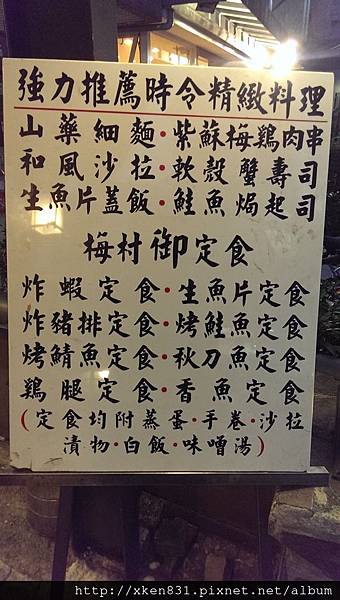 強力推薦時令精緻料理
山藥細麵•紫蘇梅鶏肉串
和風沙拉•軟殼蟹壽司
生魚片蓋飯•鮭魚焗起司
梅村御定食
炸蝦定食•生魚片定食
炸豬排定食•烤鮭魚定食
烤鯖魚定食•秋刀魚定食
鶏腿定食•香魚定食
(定食均附蒸蛋•手卷•沙拉
漬物•白飯•味噌湯)
http://xken831.pixnet.net/album